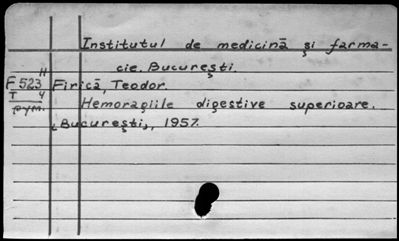 Institutul de medicină și farma-
cie. București.
H
F523 Firică, Teodor.
T 4
Hemoragiile digestive superioare.
rum.
[București], 1957.